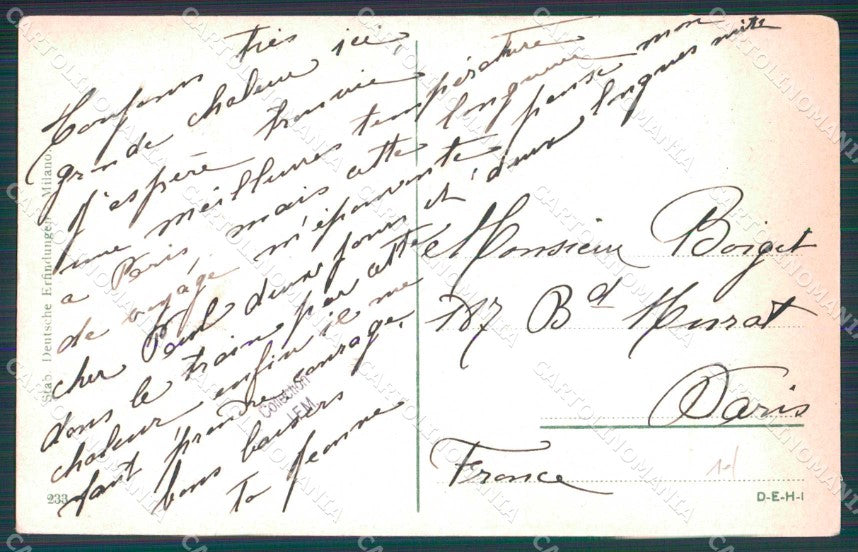 Toujours très ici,
grande chaleur
j'espère trouver
une meilleures température
a Paris, mais cette longueur
de voyage m'épouvante pense mon
cher Paul d'une jours et d'une longues nuits
dans le train par cette
chaleur enfin il me
faut prendre courage,
bons baisers
ta Jeanne
Monsieur Boiget
Bd Murat
Paris
France
Stab. Deutsche Erfindungen - Milano
233
Collection
D-E-H-I
CARTOLINOMANIA